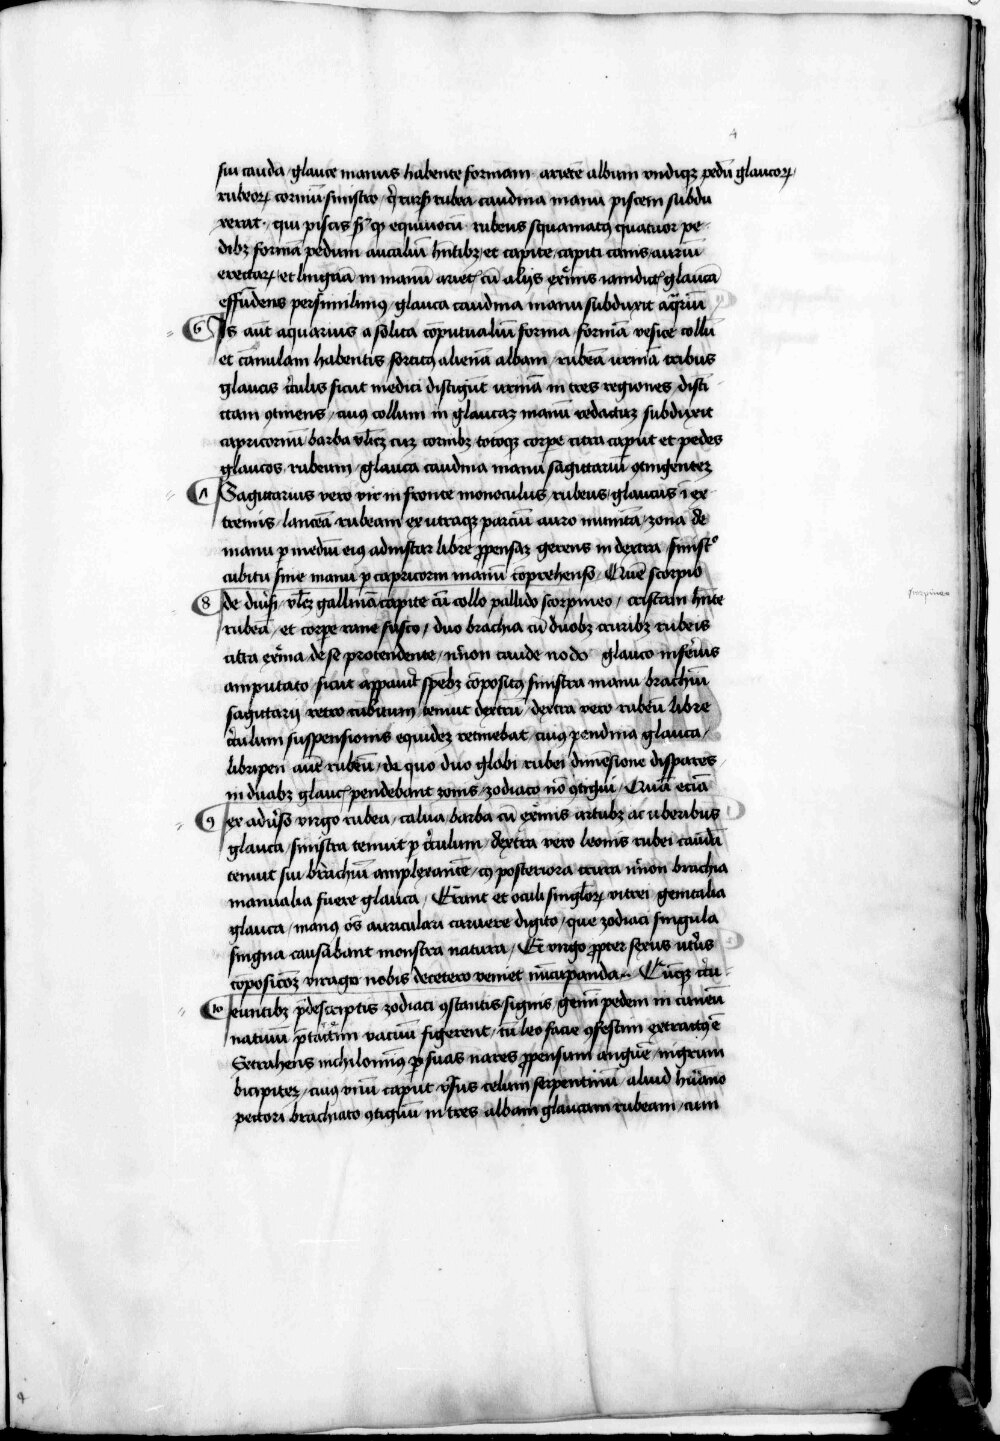 4
sui cauda / glauce manus habente formam · arietē album undiqz pedū glaucoꝝ /
rubeoꝝ cornuū sinistro / rubea caudina manu piscem subdu
xerat · / qui piscis equiuocū · rubeus squamatꝯ quatuor pe-
dibz formā pedum aucaliū hn̄tibz et capite / capiti canis aurium
erectaꝝ / et linguā in manū ariet cū alijs exᵉmis iamdict glaucā
effūdens persimilimꝯ / glauca caudina manu subduxit aqᵃriū
6 Is aūt aquarius a solita cōputualiū forma / formā vesice collū
et cānulam habentis sortitꝯ alienā albam / rubeā urinā tribus
glaucis cᵉculis sicut medici distigūt urinā in tres regiones disti-
ctam ꝯtinens / cuiꝯ collum in glaucaz manū redactuz subduxit
capricornū barba vlꝫ cuz cornibz totoqz corpe citra caput et pedes
glaucos rubeum / glauca caudina manu sagittariū ꝯtingentez
7 Sagittarius vero vir in fronte monoculus / rubeus / glaucus ī ex
tremis / lanceā rubeam ex utraqz parciū auro munitā / zona de
manu p mediū eiꝯ adinstar libre ꝓpensaz gerens in dextra / sinistᵒ
cubitu sine manu p capricorni manū cōprehenso / Quē scorpio
8 de diūsi / vlꝫ gallinā capite cū collo pallido scorpineo / cristam hn̄te
scorpineo
rubeā / et corpe rane fusco / duo brachia cū duobz cruribz rubeis
citra exᵉma de se protendente / nᵉnon caude nodo glauco inferiꝯ
amputato / sicut appauit spebz cōpositꝯ sinistra manu brachiū
sagitarij retro cubitum tenuit dextrū / dextra vero rubeū libre
cᵉculum suspensionis equidez retinebat / cuiꝯ pendina glauca /
libripen aūt rubeū / de quo duo globi rubei dimēsione dispares
in duabz glauc pendebant zonis / zodiaco nō ꝯtigui / Quā etiā
9 ex adūso virgo rubea / calua barba cū exᵉmis artubz ac uberibus
glauca / sinistra tenuit p cᵉculum / dextra vero leonis rubei caudā
tenuit sui brachiū amplexantē / cꝯ posteriora crura nᵉnon brachia
manualia fuere glauca / Erant et oculi singloꝝ vitrei / genitalia
glauca / manꝯ oēs auriculari caruere digito / que zodiaci singula
singna causabant monstra natura / Et virgo ꝓpter sexus utiꝯs
cōposicōꝫ virago nobis decetero veniet nūcupanda · Cūqz cᵉcu-
10 euntibz pᵉdescriptis zodiaci ꝯstantis signis / gemī pedem in cuneū
natiuū pᵉtactim vacuū figerent / tū leo facie ꝯfestim extractꝯ ē
Setrahens nichilominꝯ p suas nares ꝓpensum anguē / nigrum
bicipitez / cuiꝯ unū caput vsus celum serpentinū / aliud hūano
pectori brachiato ꝯtiguū in tres albam glaucam rubeam / cum